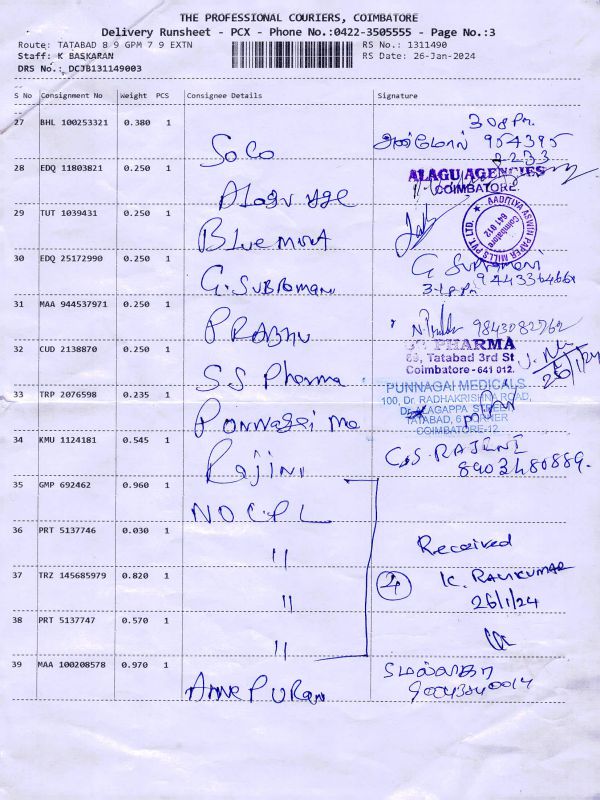 THE PROFESSIONAL COURIERS, COIMBATORE
Delivery Runsheet - PCX - Phone No.:0422-3505555 - Page No.:3
Route: TATABAD 8 9 GPM 7 9 EXTN RS No.: 1311490
Staff: K BASKARAN RS Date: 26-Jan-2024
DRS No.: DCJB131149003
S No Consignment No Weight PCS Consignee Details Signature
27 BHL 100253321 0.380 1 SoCo 308 Pm.
954395
2233
28 EDQ 11803821 0.250 1 Alagu age ALAGU AGENCIES
COIMBATORE.
29 TUT 1039431 0.250 1 Bluemount AADITIYA ASWIN PAPER MILLS PVT. LTD.
Coimbatore 641 012
30 EDQ 25172990 0.250 1 G. Subromani G Subramani
31 MAA 944537971 0.250 1 PRABHU 9843082762
32 CUD 2138870 0.250 1 S.S Pharma PHARMA
Tatabad 3rd St
Coimbatore - 641 012.
26/1/24
33 TRP 2076598 0.235 1 Punnagai me PUNNAGAI MEDICALS
100, Dr. RADHAKRISHNA ROAD,
TATABAD,
COIMBATORE-12.
34 KMU 1124181 0.545 1 Rajini RAJINI
8903480889.
35 GMP 692462 0.960 1 NOCPL
36 PRT 5137746 0.030 1 " Received
37 TRZ 145685979 0.820 1 " 4 K. RAVIKUMAR
26/1/24
38 PRT 5137747 0.570 1 "
39 MAA 100208578 0.970 1 Anne Puran